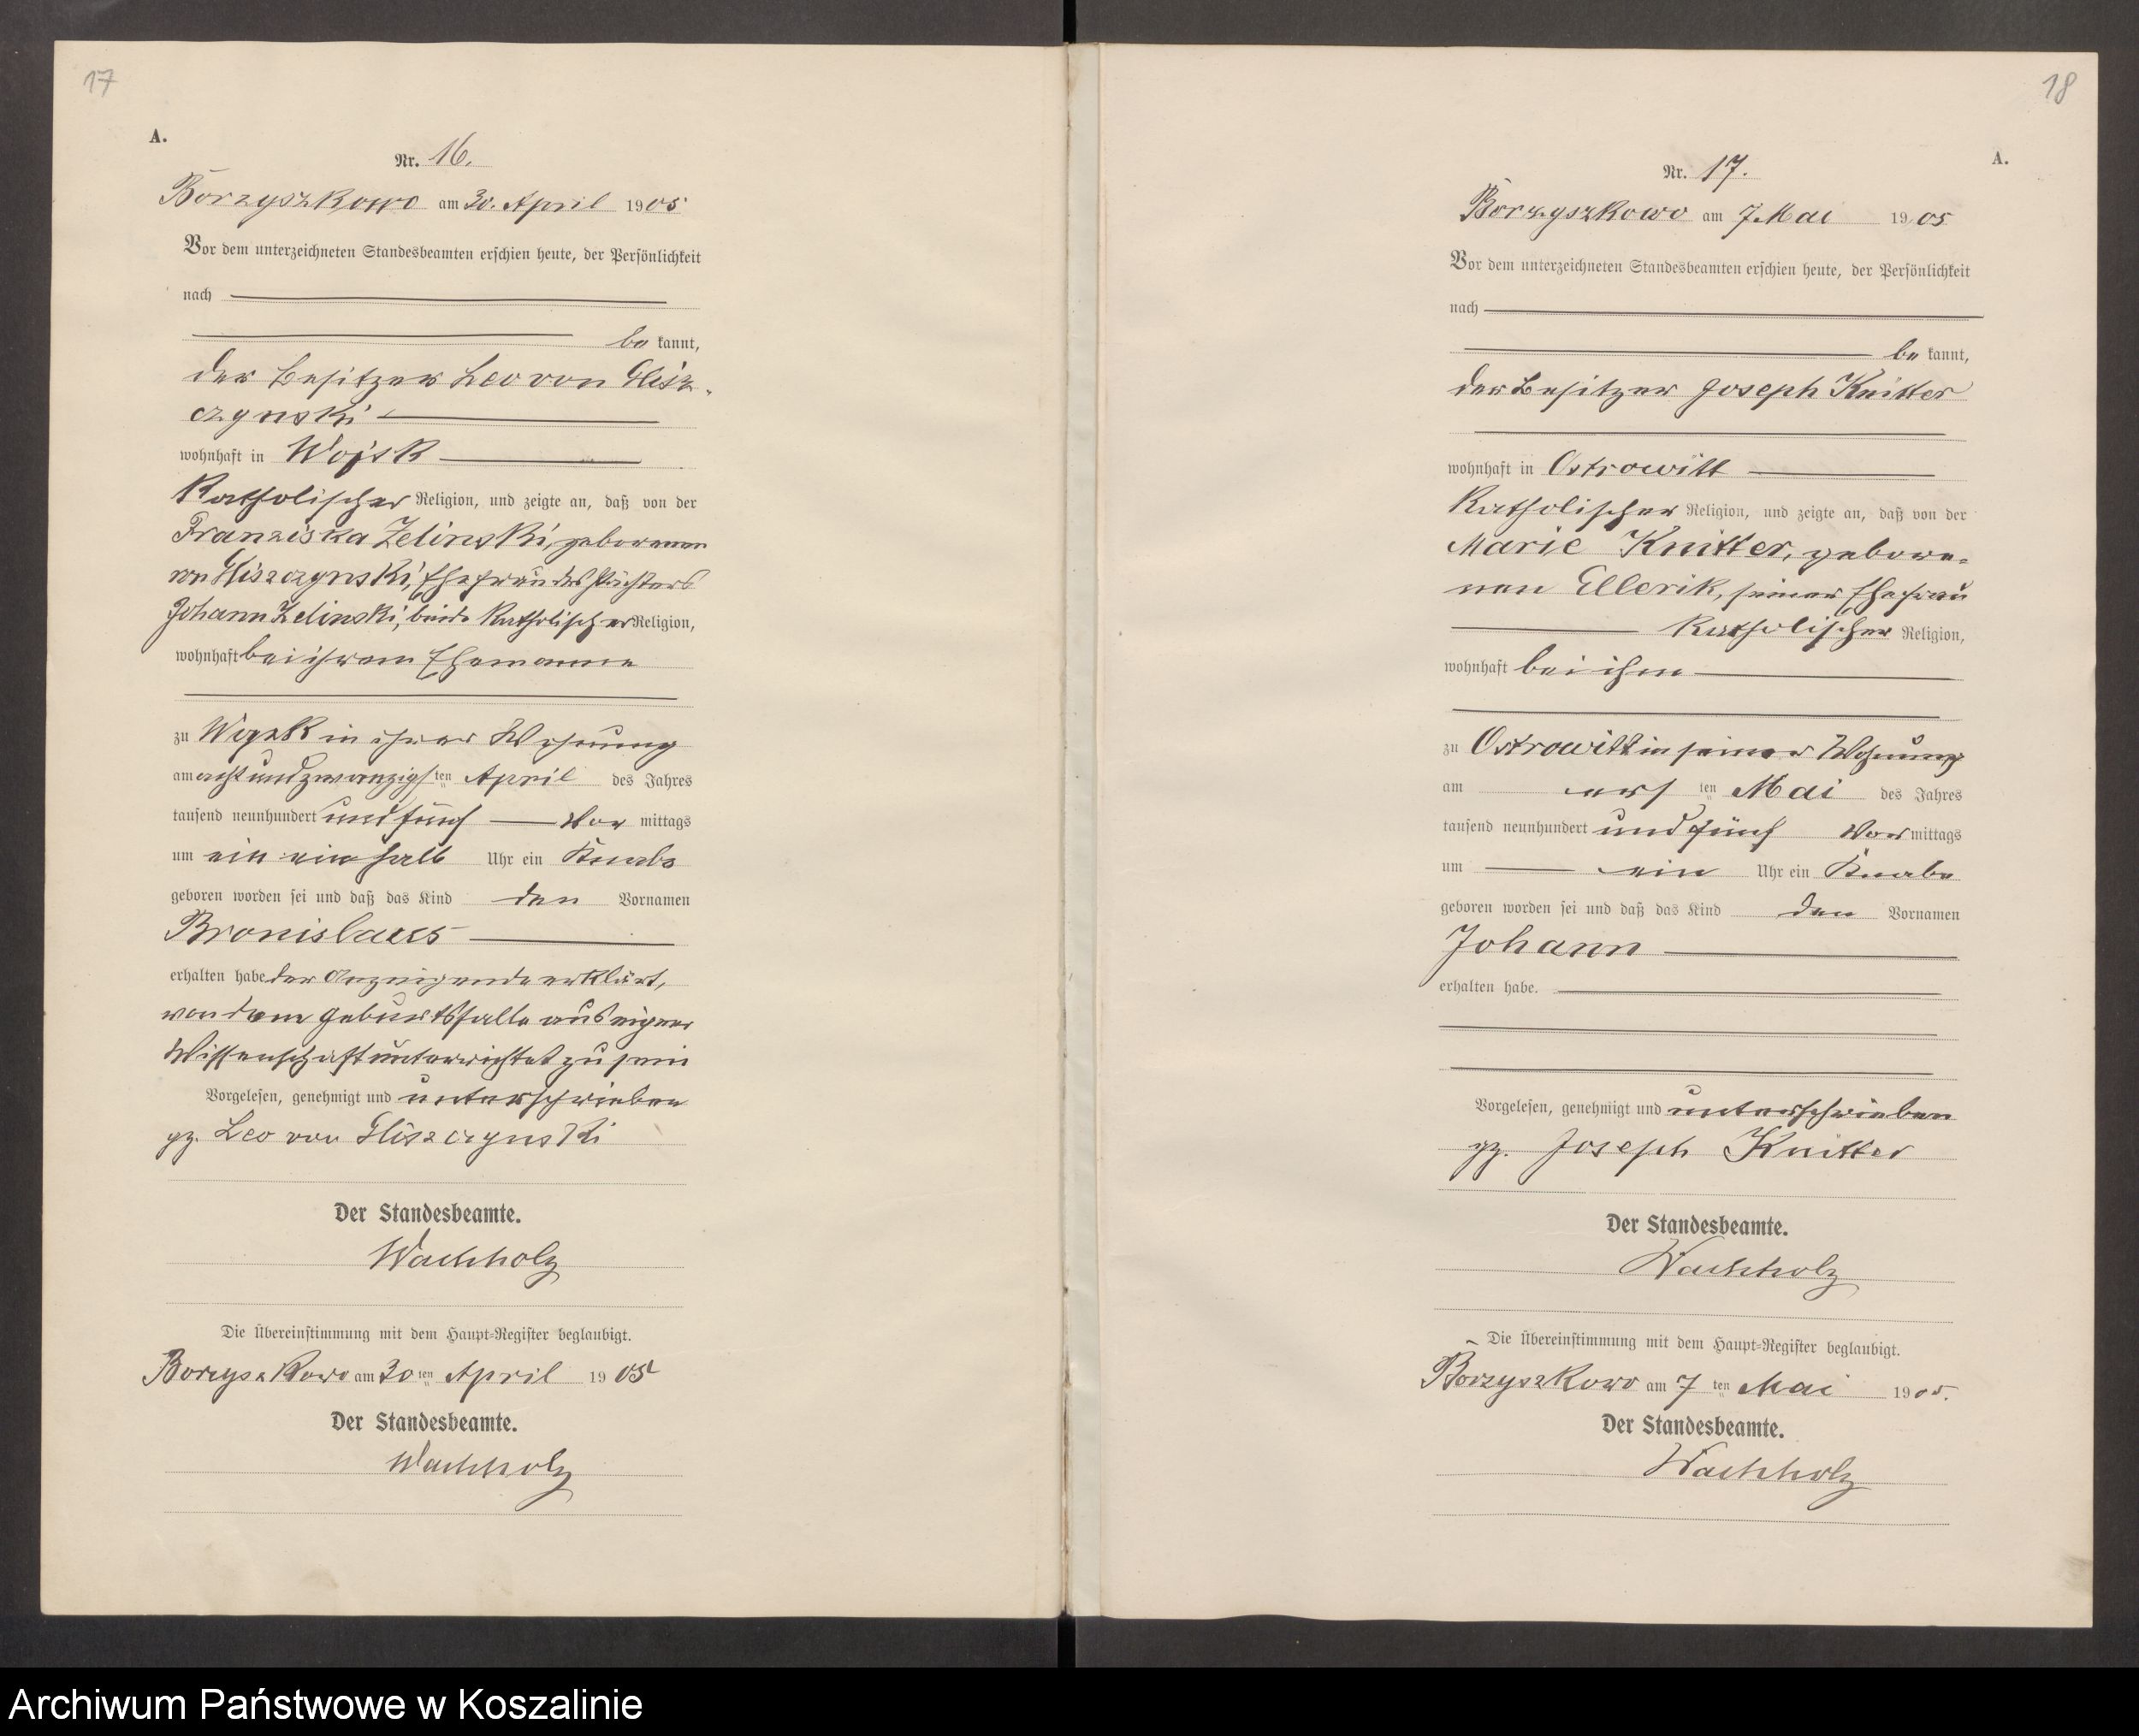 17
A.
Nr. 16.
Borzyszkowo am 30. April 1905
Vor dem unterzeichneten Standesbeamten erschien heute, der Persönlichkeit
nach
be kannt,
der Besitzer Leo von Glisz-
czynski
wohnhaft in Wojsk
Katholischer Religion, und zeigte an, daß von der
Franziska Zelinski, geborenen
von Gliszczynski, Ehefrau des Pächters
Johann Zelinski, beide Katholischer Religion,
wohnhaft bei ihrem Ehemanne
zu in ihrer Wohnung
am acht und zwanzigsten April des Jahres
tausend neunhundert und fünf Vor mittags
um ein ein halb Uhr ein Knabe
geboren worden sei und daß das Kind den Vornamen
Bronislaus
erhalten habe der Anzeigende erklärt,
von dem Geburtsfalle aus eigner
Wissenschaft unterrichtet zu sein
Vorgelesen, genehmigt und unterschrieben
gz. Leo von Gliszczynski
Der Standesbeamte.
Wachholz
Die Übereinstimmung mit dem Haupt-Register beglaubigt.
Borzyszkowo am 30 ten April 1905
Der Standesbeamte.
Wachholz
18
A.
Nr. 17.
Borzyszkowo am 7. Mai 1905
Vor dem unterzeichneten Standesbeamten erschien heute, der Persönlichkeit
nach
be kannt,
der Besitzer Joseph Knitter
wohnhaft in Ostrowitt
Katholischer Religion, und zeigte an, daß von der
Marie Knitter, gebore-
nen Ellerik, seiner Ehefrau
Katholischer Religion,
wohnhaft bei ihm
zu Ostrowitt in seiner Wohnung
am ersten Mai des Jahres
tausend neunhundert und fünf Vor mittags
um ein Uhr ein Knabe
geboren worden sei und daß das Kind den Vornamen
Johann
erhalten habe.
Vorgelesen, genehmigt und unterschrieben
gz. Joseph Knitter
Der Standesbeamte.
Wachholz
Die Übereinstimmung mit dem Haupt-Register beglaubigt.
Borzyszkowo am 7 ten Mai 1905.
Der Standesbeamte.
Wachholz
Archiwum Państwowe w Koszalinie